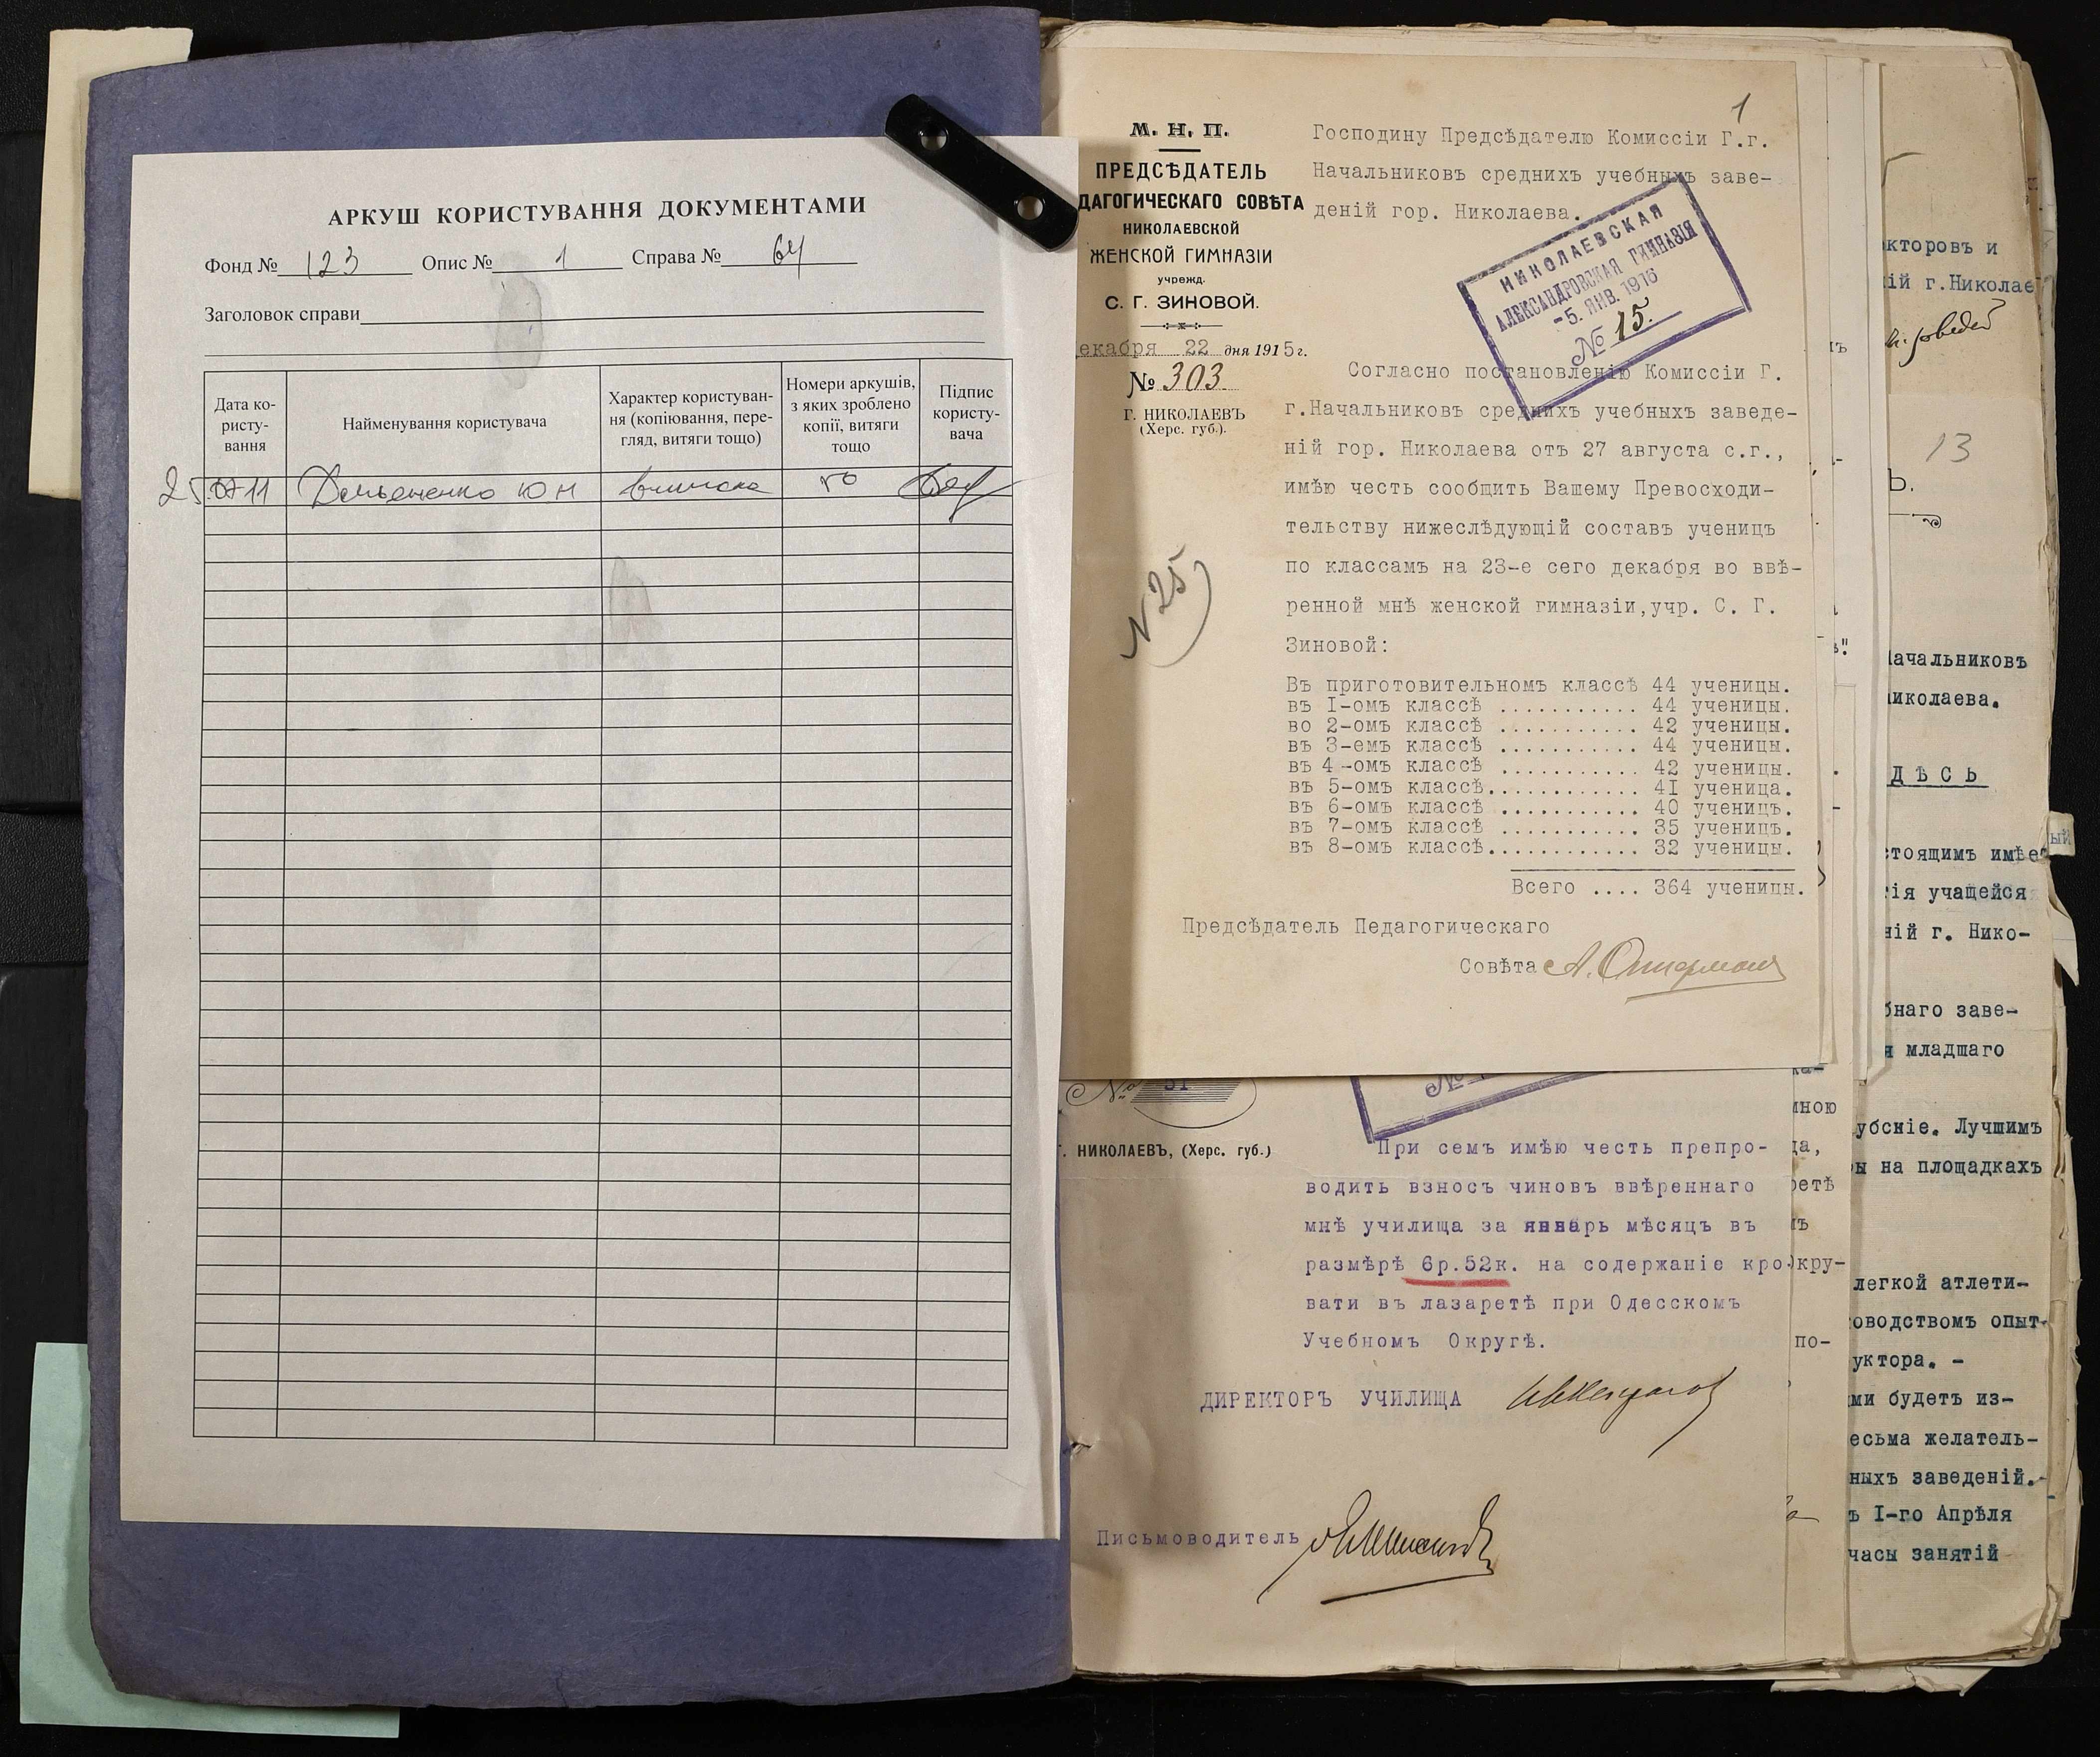 АРКУШ КОРИСТУВАННЯ ДОКУМЕНТАМИ
Фонд № 123 Опис № 1 Справа № 64
Заголовок справи
Дата ко-
ристу-
вання
Найменування користувача
Характер користуван-
ня (копіювання, пере-
гляд, витяги тощо)
Номери аркушів,
з яких зроблено
копії, витяги
тощо
Підпис
користу-
вача
25.07.11
1
М. Н. П.
ПРЕДСѢДАТЕЛЬ
ДАГОГИЧЕСКАГО СОВѢТА
НИКОЛАЕВСКОЙ
ЖЕНСКОЙ ГИМНАЗІИ
учрежд.
С. Г. ЗИНОВОЙ.
екабря 22 дня 1915 г.
№ 303
Г. НИКОЛАЕВЪ
(Херс. губ.).
N 25
Господину Предсѣдателю Комиссіи Г.г.
Начальниковъ среднихъ учебныхъ заве-
деній гор. Николаева.
НИКОЛАЕВСКАЯ
АЛЕКСАНДРОВСКАЯ ГИМНАЗІЯ
-5. ЯНВ. 1916
№ 15.
Согласно постановленію Комиссіи Г.
г.Начальниковъ среднихъ учебныхъ заведе-
ній гор. Николаева отъ 27 августа с.г.,
имѣю честь сообщить Вашему Превосходи-
тельству нижеслѣдующій составъ ученицъ
по классамъ на 23-е сего декабря во ввѣ-
ренной мнѣ женской гимназіи,учр. С. Г.
Зиновой:
Въ приготовительномъ классѣ 44 ученицы.
въ I-омъ классѣ ........... 44 ученицы.
во 2-омъ классѣ ........... 42 ученицы.
въ 3-емъ классѣ ........... 44 ученицы.
въ 4-омъ классѣ ........... 42 ученицы.
въ 5-омъ классѣ............ 4I ученица.
въ 6-омъ классѣ ........... 40 ученицъ.
въ 7-омъ классѣ ........... 35 ученицъ.
въ 8-омъ классѣ............ 32 ученицы.
Всего .... 364 ученицы.
Предсѣдатель Педагогическаго
Совѣта
№ 51
Г. НИКОЛАЕВЪ, (Херс. губ.)
При семъ имѣю честь препро-
водить взносъ чиновъ ввѣреннаго
мнѣ училища за январь мѣсяцъ въ
размѣрѣ 6р.52к. на содержаніе кро-
вати въ лазаретѣ при Одесскомъ
Учебномъ Округѣ.
ДИРЕКТОРЪ УЧИЛИЩА
Письмоводитель
мною
да,
ретѣ
Окру-
по-
кторовъ и
ій г.Николае
13
Ь.
ачальниковъ
иколаева.
ДѢСЬ
стоящимъ имѣе
тія учащейся
ній г. Нико-
бнаго заве-
я младшаго
убскіе. Лучшимъ
ы на площадкахъ
легкой атлети-
оводствомъ опыт-
уктора. -
ми будетъ из-
есьма желатель-
ныхъ заведеній.-
ъ I-го Апрѣля
часы занятій
ый